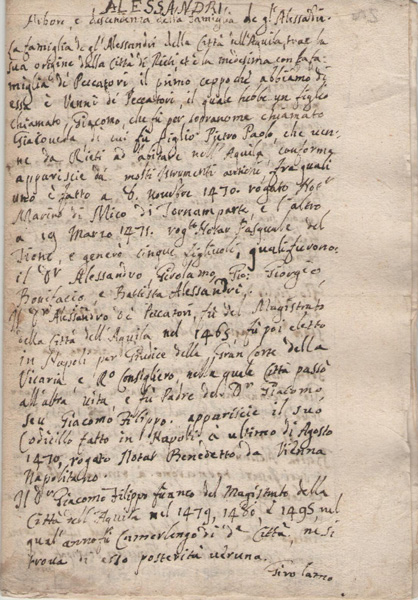 ALESSANDRI.
Arbore e discendenza della famiglia de gl'Alessandri.
La famiglia de gl'Alessandri della Città dell'Aquila trae la
sua origine della Città di Rieti, et è la medesima con la fa-
miglia di Peccatori il primo ceppo che abbiamo di
essa è Vanni de Peccatori, il quale hebbe un figlio
chiamato Giacomo, che fù per sopranome chiamato
di cui fù figlio Pietro Paolo, che ven-
ne da Rieti ad abitare nell'Aquila, conforme
apparisce da molti istrumenti antichi, fra quali
uno è fatto a 8. novembre 1470. rogato Notar
Marino di Mico di Tornamparte, e l'altro
a 19 Marzo 1471. rogato Notar Pasquale del
Tione, e generò cinque figliuoli, quali furono:
il Dr Alessandro Girolamo, Gio: Giorgio
Bonifacio, e Battista Alessandri.
Il Dr Alessandro de Peccatori, fù del Magistrato
della Città dell'Aquila nel 1465, fù poi eletto
in Napoli per Giudice della Gran Corte della
Vicaria e Ro Consigliero, nella quale Città passò
all'altra vita e fù Padre del Dr Giacomo,
seu Giacomo Filippo. apparisce il suo
Codicillo fatto in Napoli à ultimo di Agosto
1470, rogato Notar Benedetto da Vienna
Napolitano.
Il Dr Giacomo Filippo fù anco del Magistrato della
Città dell'Aquila nel 1479, 1480 e 1495, nel
qual anno fù Camerlengo di da Città, ne si
trova di esso posterità veruna.
Girolamo